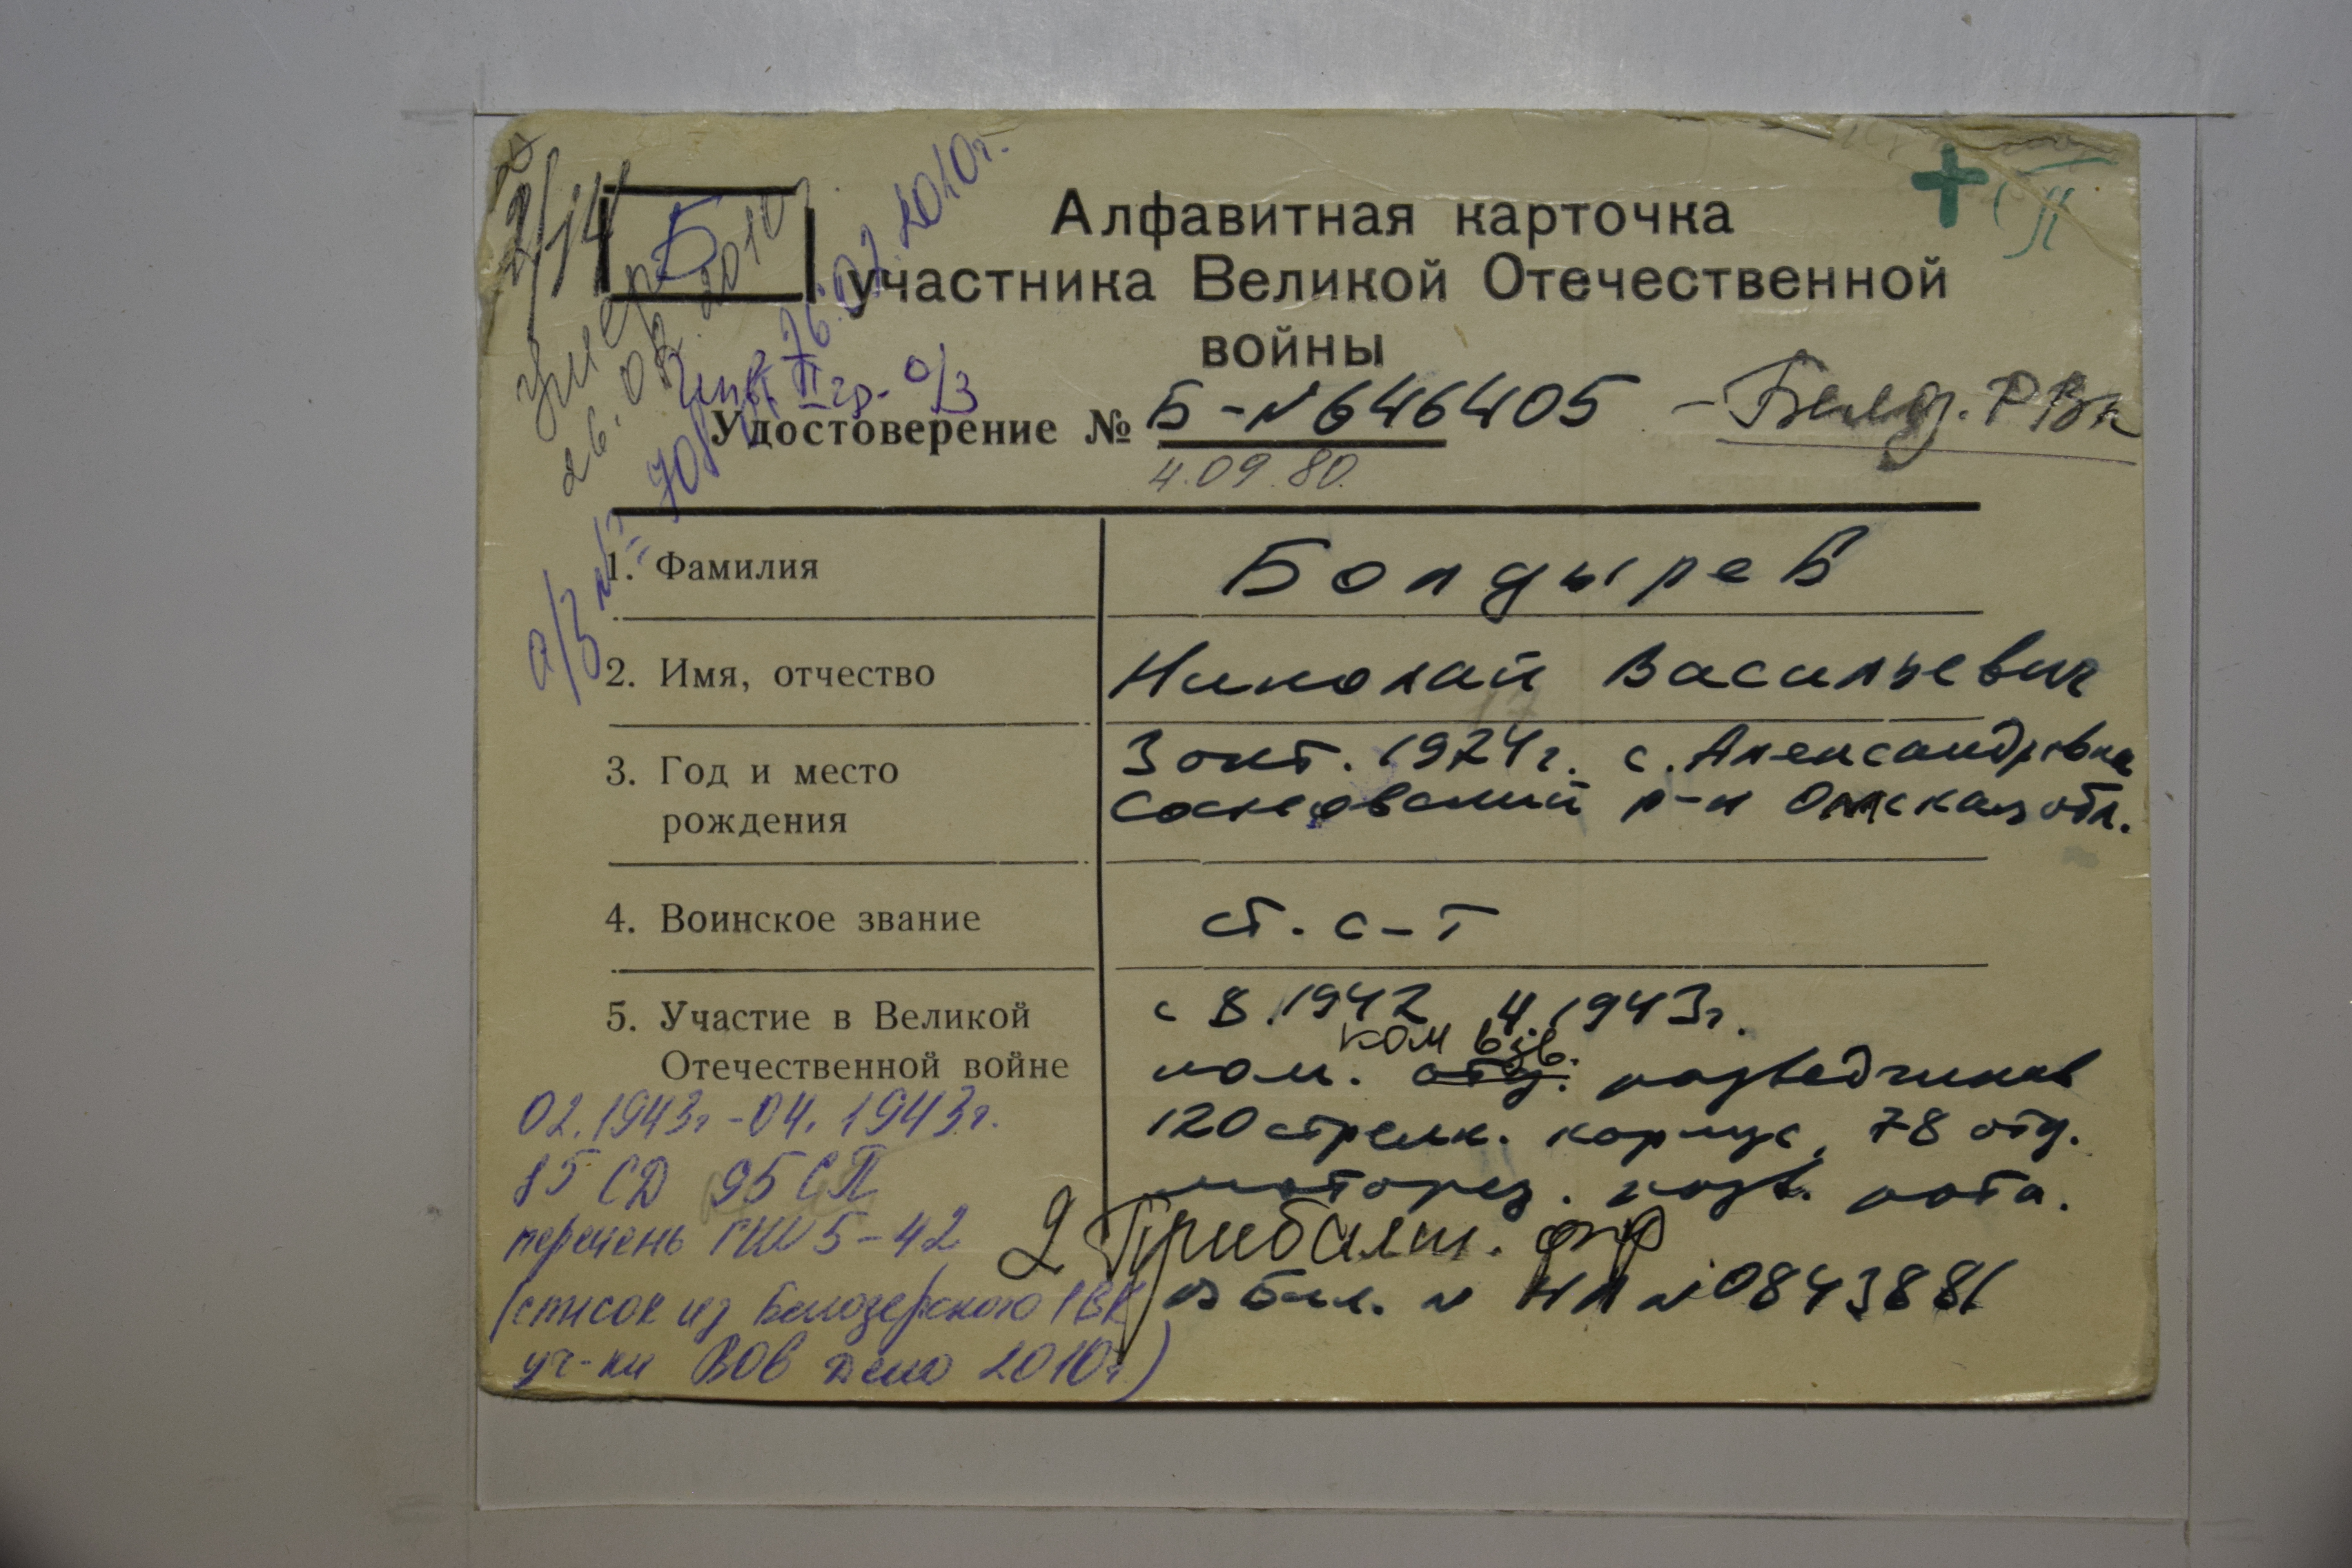 2/14
Б
умер
26.02.2010
26.02.2010г.
Инв. II гр. о/з
+
Алфавитная карточка
участника Великой Отечественной
войны
Удостоверение № Б-№646405 - Белоз. РВк
4.09.80.
1. Фамилия Болдырев
2. Имя, отчество Николай Васильевич
17
3. Год и место рождения 3 окт. 1924г. с. Александровка
Сосновский р-н Омская обл.
4. Воинское звание ст. с-т
5. Участие в Великой Отечественной войне с 8.1942 4.1943г.
ком взв.
пом. отд. разведчиков
120 стрелк. корпус, 78 отд.
моторез. разв. рота.
2 Прибалт. фр
в Бил. № НЛ №0843881
02.1943г-04.1943г.
85 СД 95 СП
перечень ГШ 5-42
(список из Белозерского РВК
уч-ки ВОВ дело 2010г.)